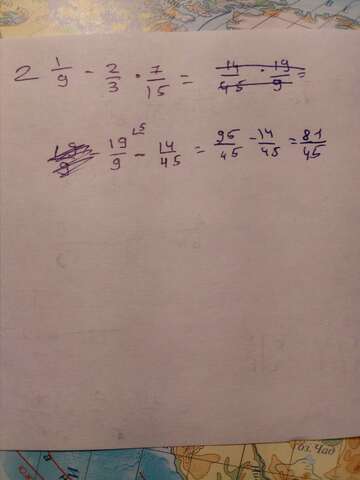 2 1/9 - 2/3 · 7/15 = 14/45 · 19/9 =
19/9 19/9 ⌊5 - 14/45 = 95/45 - 14/45 = 81/45
оз. Чад